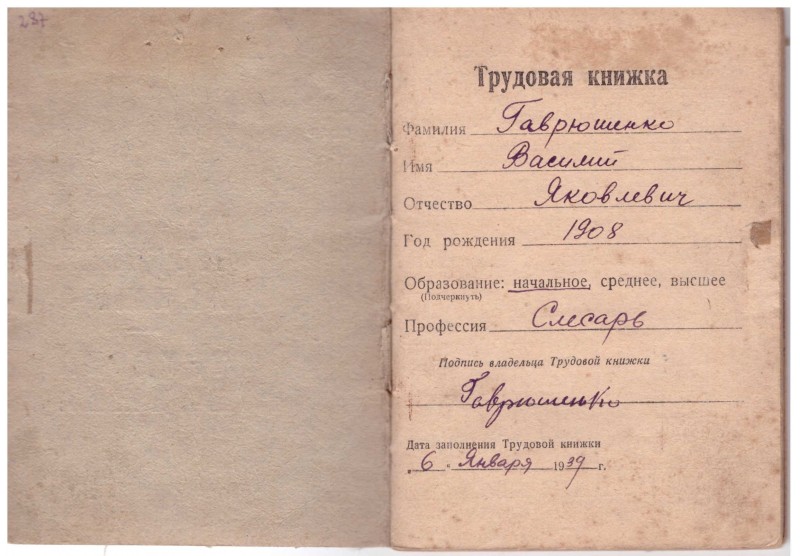 287
Трудовая книжка
Фамилия Гаврюшенко
Имя Василий
Отчество Яковлевич
Год рождения 1908
Образование: начальное, среднее, высшее
(Подчеркнуть)
Профессия Слесарь
Подпись владельца Трудовой книжки
Гаврюшенко
Дата заполнения Трудовой книжки
„6“ Января 1939 г.